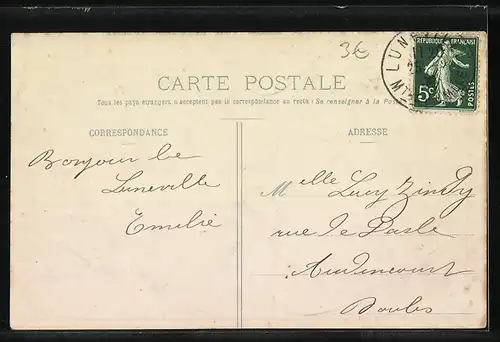 3k
LUNEVILLE
REPUBLIQUE FRANÇAISE
5c
POSTES
CARTE POSTALE
Tous les pays étrangers n'acceptent pas la correspondance au recto (Se renseigner à la Poste)
CORRESPONDANCE
ADRESSE
Bonjour de
Luneville
Emelie
Melle Lucy Zindy
rue le Pasle
Audincourt
Doubs